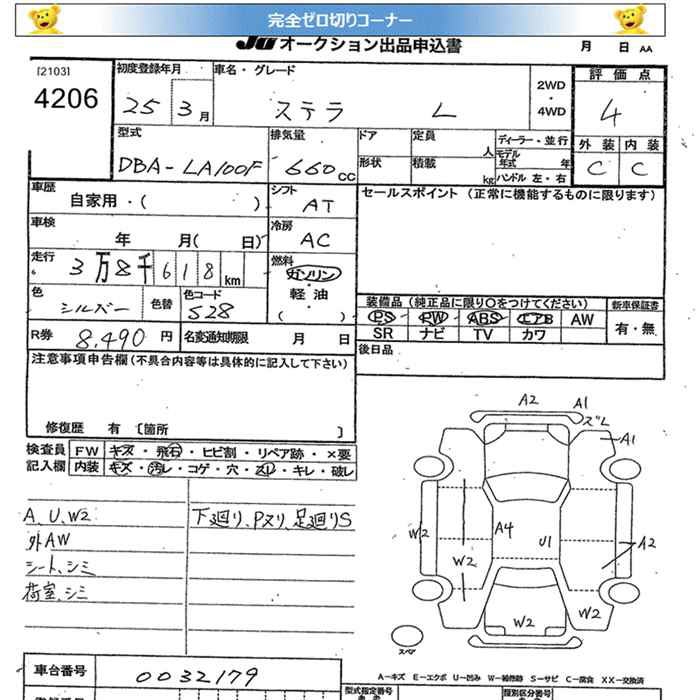 完全ゼロ切りコーナー
JU オークション出品申込書 月 日 AA
[2103] 初度登録年月 車名・グレード 2WD・4WD 評価点
4206 25 3月 ステラ L 4
型式 排気量 ドア 定員 人 ディーラー・並行 外装 内装
DBA-LA100F 660cc 形状 積載 kg モデル年式 年 ハンドル 左・右 C C
車歴 自家用・( ) シフト AT セールスポイント (正常に機能するものに限ります)
車検 年 月( 日) 冷房 AC
走行 3万8千618km 燃料 ガソリン・軽油 ( )
色 シルバー 色替 色コード S28
装備品 (純正品に限り○をつけてください) 新車保証書
PS PW ABS エアB AW 有・無
SR ナビ TV カワ
R券 8,490円 名変通知期限 月 日 後日品
注意事項申告欄 (不具合内容等は具体的に記入して下さい)
修復歴 有 [箇所 ]
検査員記入欄 FW キズ・飛石・ヒビ割・リペア跡・×要
内装 キズ・汚レ・コゲ・穴・スレ・キレ・破レ
A、U、W2 下廻り、Pヌリ、足廻りS
外AW
シート、シミ
荷室、シミ
A2 A1
ズレ
A1
W2 A4 U1 A2
W2
W2 W2
スペア
A－キズ E－エクボ U－凹み W－補修跡 S－サビ C－腐食 XX－交換済
車台番号 0032179 型式指定番号 類別区分番号